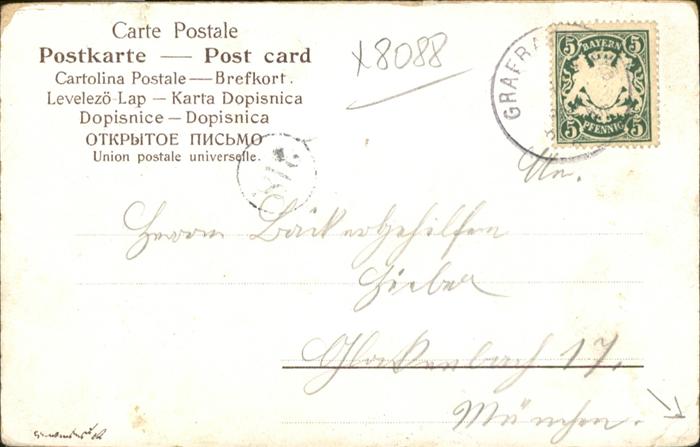 Carte Postale
Postkarte — Post card
Cartolina Postale — Brefkort.
Levelező-Lap — Karta Dopisnica
Dopisnice — Dopisnica
ОТКРЫТОЕ ПИСЬМО
Union postale universelle.
x8088
GRAFRA
5 BAYERN 5
5 PFENNIG 5
An.
Herrn Bäckergehilfen
Glockenbach 17.
München.